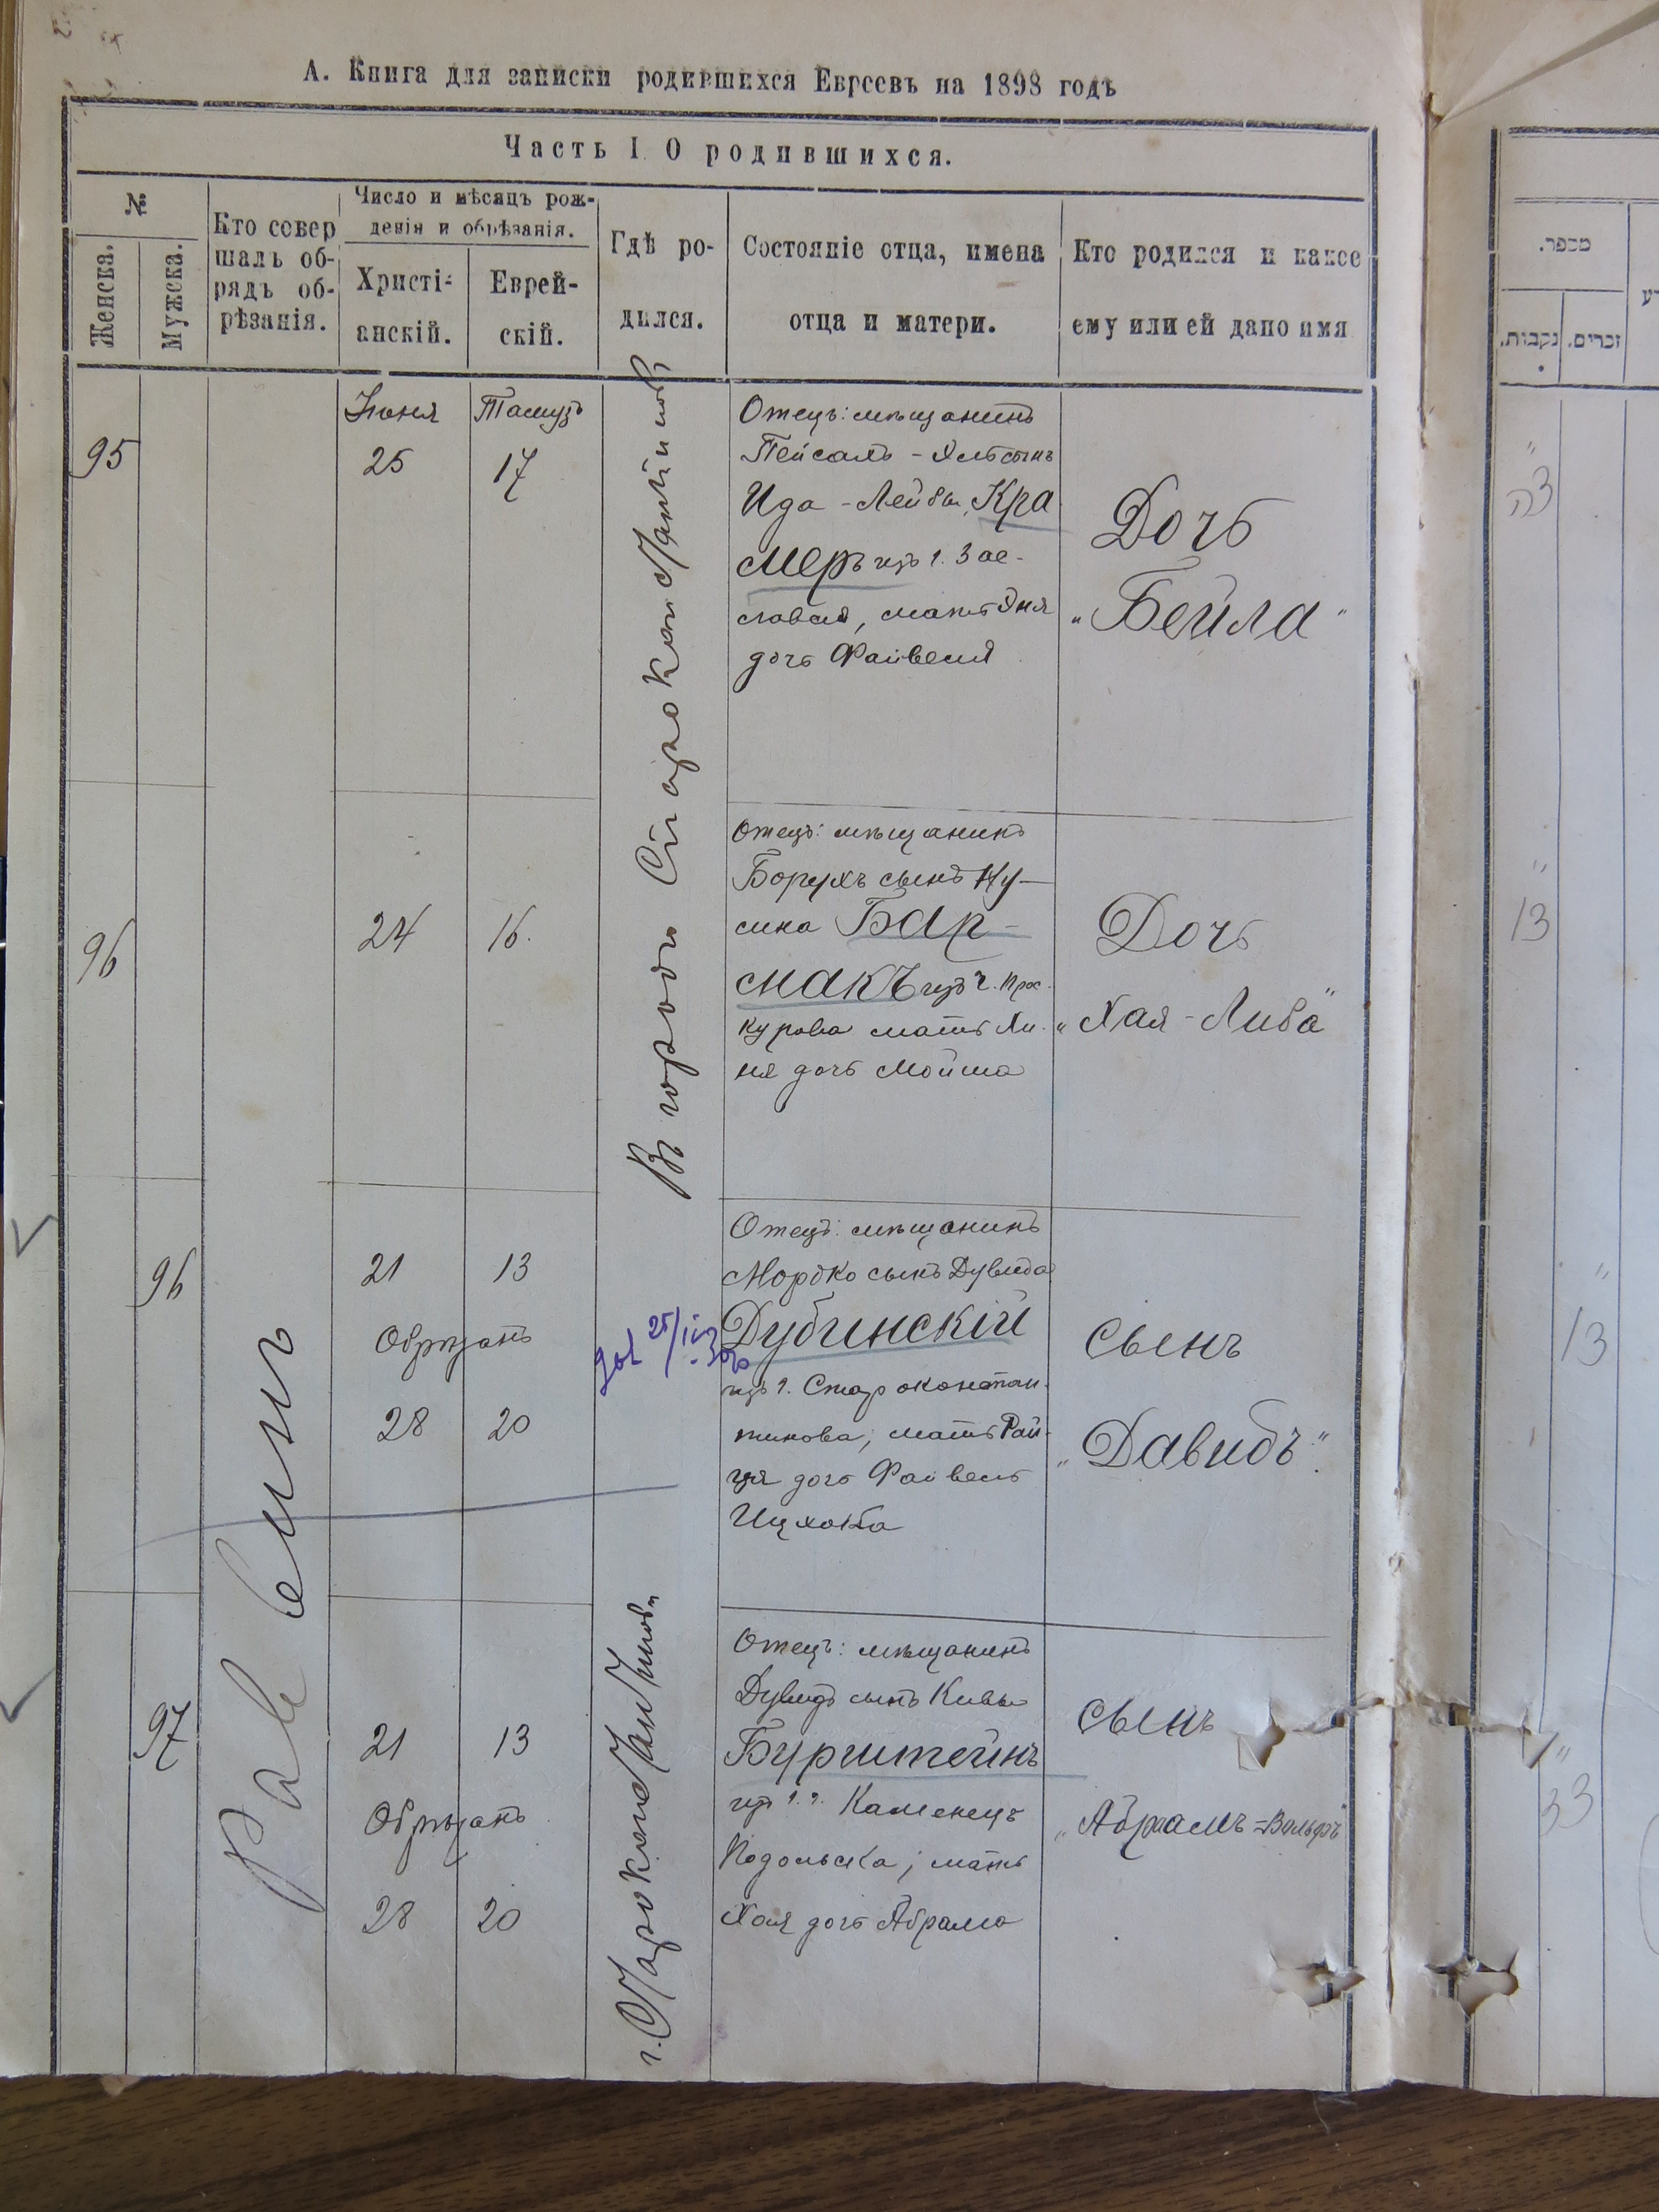 А. Книга для записки родившихся Евреевъ на 1898 годъ
Часть I О родившихся.
№
Женска.
Мужска.
Кто совер
шалъ об-
рядъ об-
рѣзанія.
Число и мѣсяцъ рож-
денія и обрѣзанія.
Христі-
анскій.
Еврей-
скій.
Гдѣ ро-
дился.
Состояніе отца, имена
отца и матери.
Кто родился и какое
ему или ей дано имя
Равинъ
В городѣ Староконстантиновѣ
95
Іюня
Тамузъ
25
17
Отецъ: мѣщанинъ
Пейсахъ - сынъ
Ида - Лейбы Кра
меръ изъ г. Зас-
лавля, мать Эня
дочь Файвеля
Дочь
"Бейла"
96
24
16.
Отецъ: мѣщанинъ
Борухъ сынъ Ну-
сина Бар-
макъ изъ г. Прос-
курова мать Ли-
ня дочь Мойша
Дочь
"Хая-Либа"
96
21
13
Обрѣзанъ
28
20
Отецъ: мѣщанинъ
Мордко сынъ Дувида
Дубинскій
изъ г. Староконстан-
тинова; мать Рай-
ця дочь Файвель
Ицхока
Сынъ
"Давидъ".
г. Староконстантиновѣ
97
21
13
Обрѣзанъ
28
20
Отецъ: мѣщанинъ
Дувидъ сынъ Кивы
Бурштейнъ
изъ г. Каменецъ
Подольска; мать
Хая дочь Абрама
Сынъ
"Абрамъ=Вольфъ"
מספר.
נקבות.
זכרים.